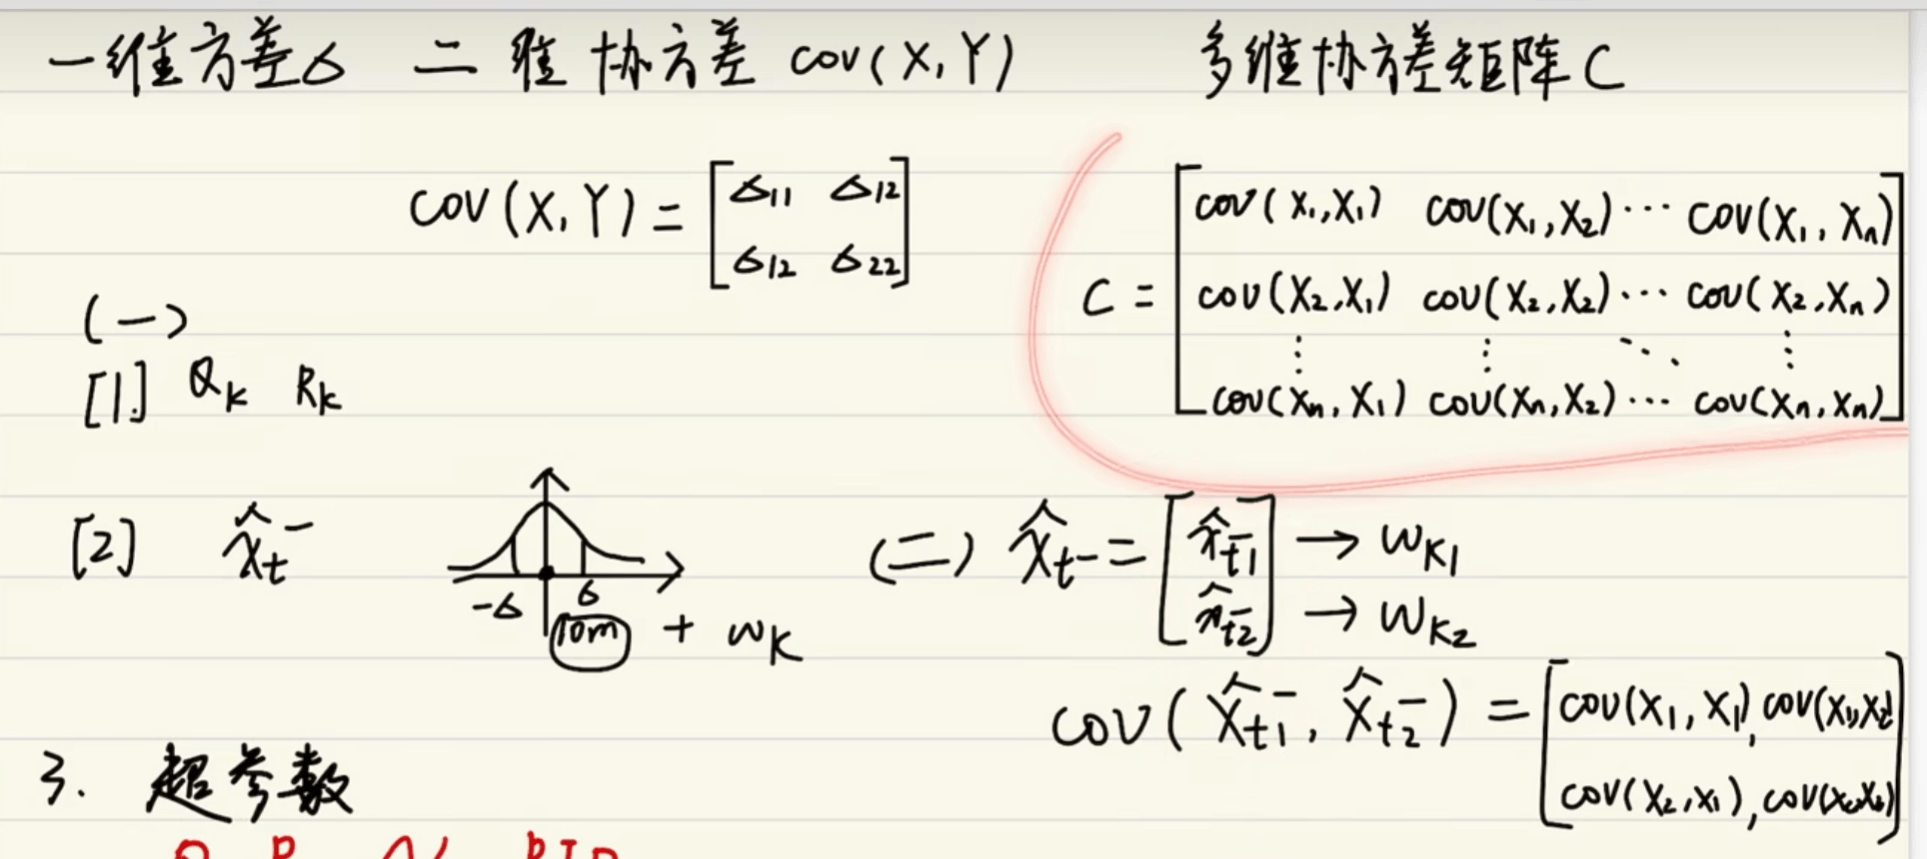 一维方差σ 二维协方差 cov(X,Y) 多维协方差矩阵C
cov(X,Y) = [σ11 σ12
σ12 σ22]
C = [cov(x1,x1) cov(x1,x2) ··· cov(x1,xn)
cov(x2,x1) cov(x2,x2) ··· cov(x2,xn)
⋮ ⋮ ⋱ ⋮
cov(xn,x1) cov(xn,x2) ··· cov(xn,xn)]
(一)
[1] Qk Rk
[2] x̂t⁻
-σ σ
10m + wk
(二) x̂t⁻ = [x̂t1⁻ → wk1
x̂t2⁻] → wk2
cov(x̂t1⁻, x̂t2⁻) = [cov(x1,x1), cov(x1,x2)
cov(x2,x1), cov(x2,x2)]
3. 超参数